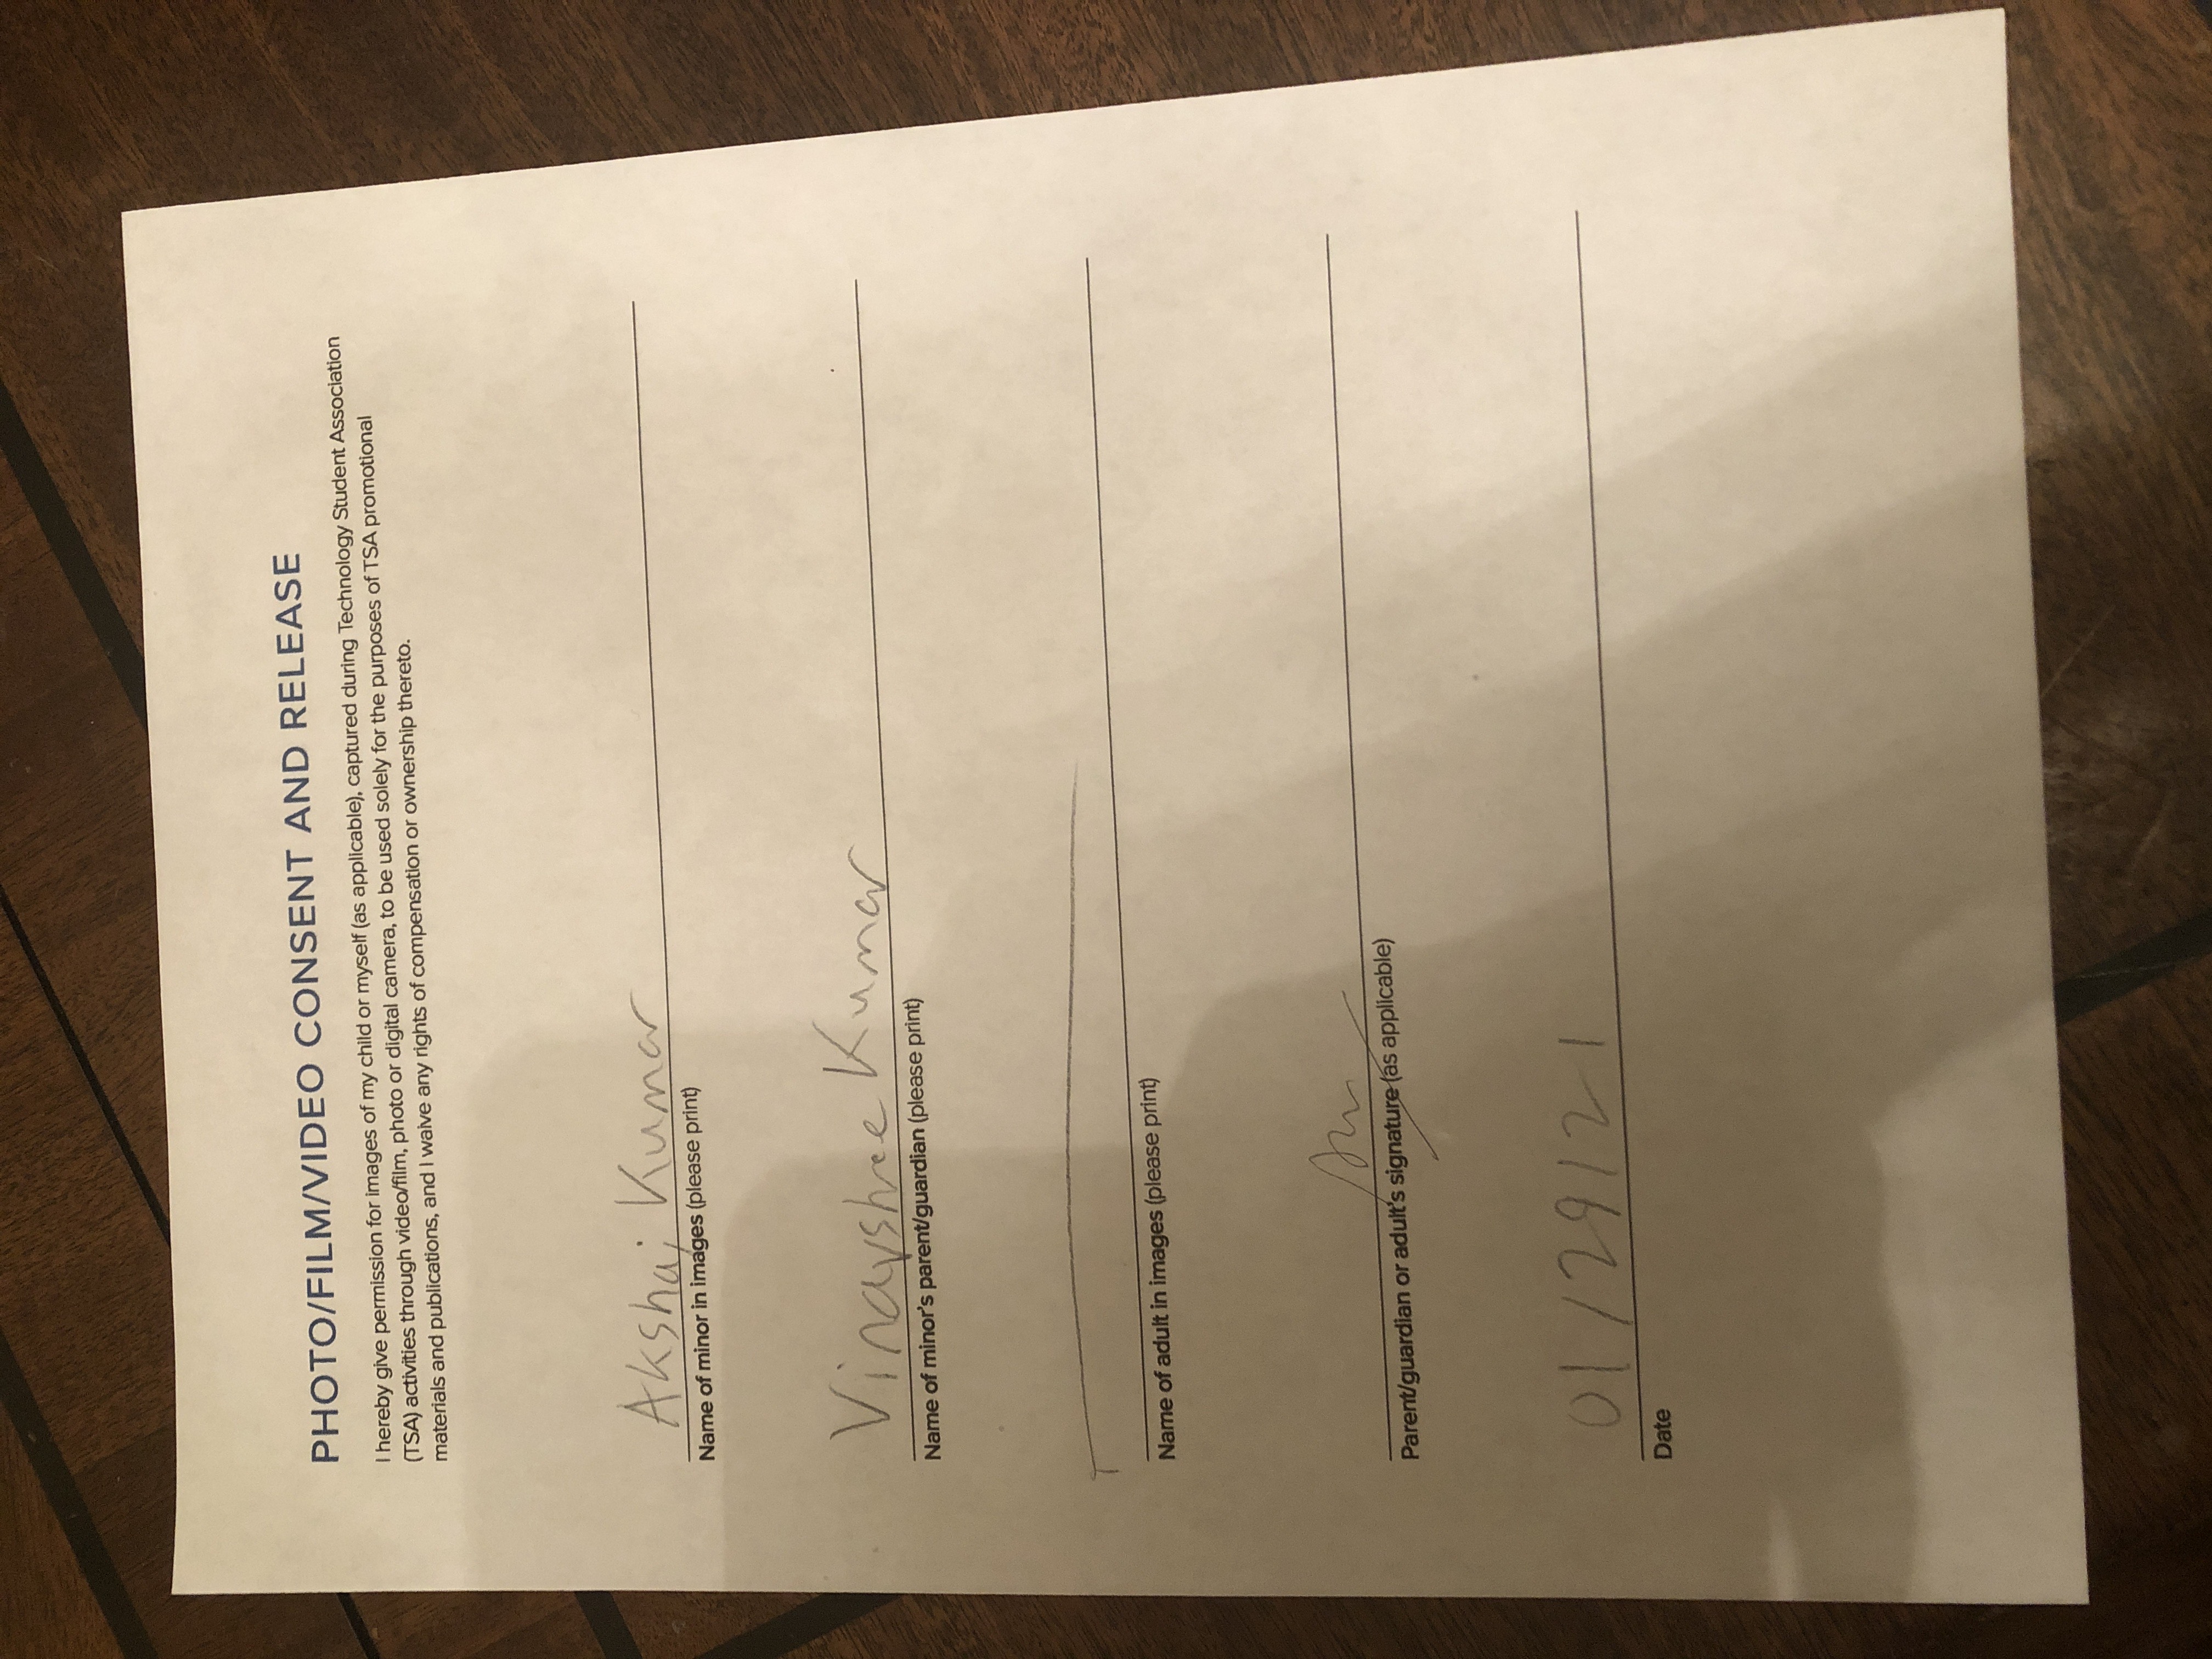 PHOTO/FILM/VIDEO CONSENT AND RELEASE
I hereby give permission for images of my child or myself (as applicable), captured during Technology Student Association
(TSA) activities through video/film, photo or digital camera, to be used solely for the purposes of TSA promotional
materials and publications, and I waive any rights of compensation or ownership thereto.
Akshaj Kumar
Name of minor in images (please print)
Vinayshree Kumar
Name of minor's parent/guardian (please print)
Name of adult in images (please print)
Parent/guardian or adult's signature (as applicable)
01/29/21
Date